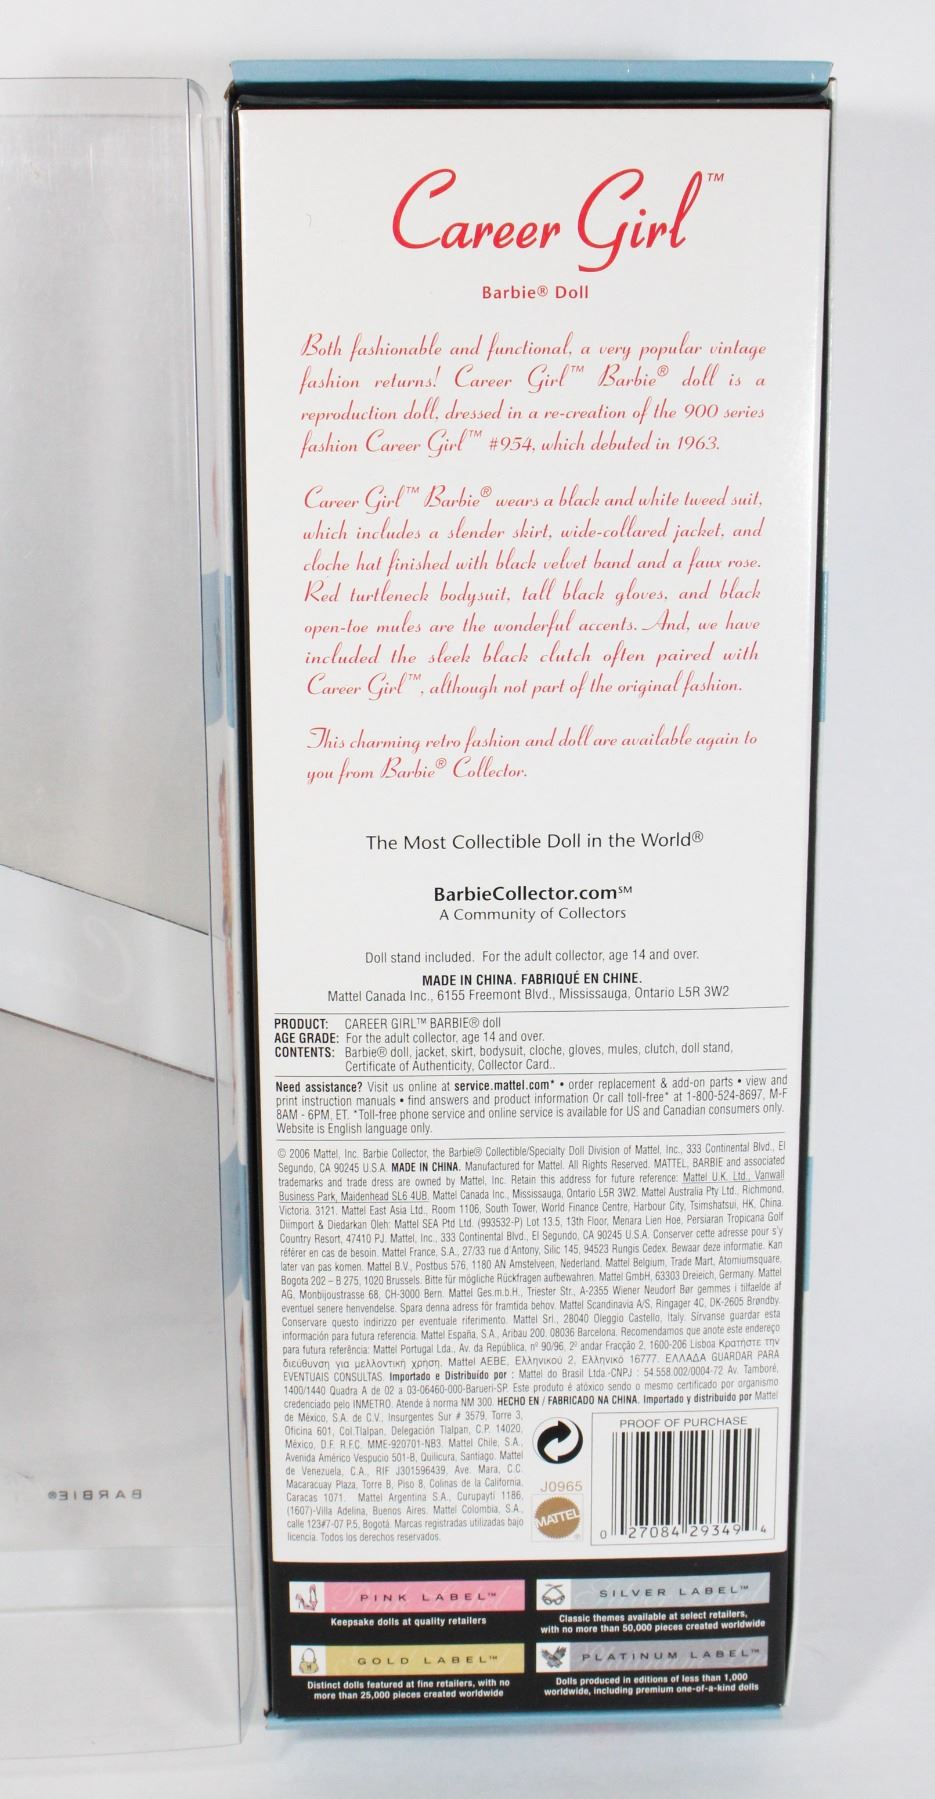 Career Girl™
Barbie® Doll
Both fashionable and functional, a very popular vintage
fashion returns! Career Girl™ Barbie® doll is a
reproduction doll, dressed in a re-creation of the 900 series
fashion Career Girl™ #954, which debuted in 1963.
Career Girl™ Barbie® wears a black and white tweed suit,
which includes a slender skirt, wide-collared jacket, and
cloche hat finished with black velvet band and a faux rose.
Red turtleneck bodysuit, tall black gloves, and black
open-toe mules are the wonderful accents. And, we have
included the sleek black clutch often paired with
Career Girl™, although not part of the original fashion.
This charming retro fashion and doll are available again to
you from Barbie® Collector.
The Most Collectible Doll in the World®
BarbieCollector.com℠
A Community of Collectors
Doll stand included. For the adult collector, age 14 and over.
MADE IN CHINA. FABRIQUÉ EN CHINE.
Mattel Canada Inc., 6155 Freemont Blvd., Mississauga, Ontario L5R 3W2
PRODUCT: CAREER GIRL™ BARBIE® doll
AGE GRADE: For the adult collector, age 14 and over.
CONTENTS: Barbie® doll, jacket, skirt, bodysuit, cloche, gloves, mules, clutch, doll stand,
Certificate of Authenticity, Collector Card..
Need assistance? Visit us online at service.mattel.com* • order replacement & add-on parts • view and
print instruction manuals • find answers and product information Or call toll-free* at 1-800-524-8697, M-F
8AM - 6PM, ET. *Toll-free phone service and online service is available for US and Canadian consumers only.
Website is English language only.
© 2006 Mattel, Inc. Barbie Collector, the Barbie® Collectible/Specialty Doll Division of Mattel, Inc., 333 Continental Blvd., El
Segundo, CA 90245 U.S.A. MADE IN CHINA. Manufactured for Mattel. All Rights Reserved. MATTEL, BARBIE and associated
trademarks and trade dress are owned by Mattel, Inc. Retain this address for future reference: Mattel U.K. Ltd., Vanwall
Business Park, Maidenhead SL6 4UB. Mattel Canada Inc., Mississauga, Ontario L5R 3W2. Mattel Australia Pty Ltd., Richmond,
Victoria. 3121. Mattel East Asia Ltd., Room 1106, South Tower, World Finance Centre, Harbour City, Tsimshatsui, HK, China.
Diimport & Diedarkan Oleh: Mattel SEA Ptd Ltd. (993532-P) Lot 13.5, 13th Floor, Menara Lien Hoe, Persiaran Tropicana Golf
Country Resort, 47410 PJ. Mattel, Inc., 333 Continental Blvd., El Segundo, CA 90245 U.S.A. Conserver cette adresse pour s'y
référer en cas de besoin. Mattel France, S.A., 27/33 rue d'Antony, Silic 145, 94523 Rungis Cedex. Bewaar deze informatie. Kan
later van pas komen. Mattel B.V., Postbus 576, 1180 AN Amstelveen, Nederland. Mattel Belgium, Trade Mart, Atomiumsquare,
Bogota 202 – B 275, 1020 Brussels. Bitte für mögliche Rückfragen aufbewahren. Mattel GmbH, 63303 Dreieich, Germany. Mattel
AG, Monbijoustrasse 68, CH-3000 Bern. Mattel Ges.m.b.H., Triester Str., A-2355 Wiener Neudorf Bør gemmes i tilfælde af
eventuel senere henvendelse. Spara denna adress för framtida behov. Mattel Scandinavia A/S, Ringager 4C, DK-2605 Brøndby.
Conservare questo indirizzo per eventuale riferimento. Mattel Srl., 28040 Oleggio Castello, Italy. Sírvanse guardar esta
información para futura referencia. Mattel España, S.A., Aribau 200. 08036 Barcelona. Recomendamos que anote este endereço
para futura referência: Mattel Portugal Lda., Av. da República, nº 90/96, 2º andar Fracção 2, 1600-206 Lisboa Κρατήστε την
διεύθυνση για μελλοντική χρήση. Mattel AEBE, Ελληνικού 2, Ελληνικό 16777. ΕΛΛΑΔΑ GUARDAR PARA
EVENTUAIS CONSULTAS. Importado e Distribuído por : Mattel do Brasil Ltda.-CNPJ : 54.558.002/0004-72 Av. Tamboré,
1400/1440 Quadra A de 02 a 03-06460-000-Barueri-SP. Este produto é atóxico sendo o mesmo certificado por organismo
credenciado pelo INMETRO. Atende à norma NM 300. HECHO EN / FABRICADO NA CHINA. Importado y distribuido por Mattel
de México, S.A. de C.V., Insurgentes Sur # 3579, Torre 3,
Oficina 601, Col.Tlalpan, Delegación Tlalpan, C.P. 14020,
México, D.F. R.F.C. MME-920701-NB3. Mattel Chile, S.A.,
Avenida Américo Vespucio 501-B, Quilicura, Santiago. Mattel
de Venezuela, C.A., RIF J301596439, Ave. Mara, C.C.
Macaracuay Plaza, Torre B, Piso 8, Colinas de la California,
Caracas 1071. Mattel Argentina S.A., Curupayti 1186,
(1607)-Villa Adelina, Buenos Aires. Mattel Colombia, S.A.,
calle 123#7-07 P.5, Bogotá. Marcas registradas utilizadas bajo
licencia. Todos los derechos reservados.
J0965
MATTEL
PROOF OF PURCHASE
0 27084 29349 4
BARBIE®
PINK LABEL™
Keepsake dolls at quality retailers
SILVER LABEL™
Classic themes available at select retailers,
with no more than 50,000 pieces created worldwide
GOLD LABEL™
Distinct dolls featured at fine retailers, with no
more than 25,000 pieces created worldwide
PLATINUM LABEL™
Dolls produced in editions of less than 1,000
worldwide, including premium one-of-a-kind dolls